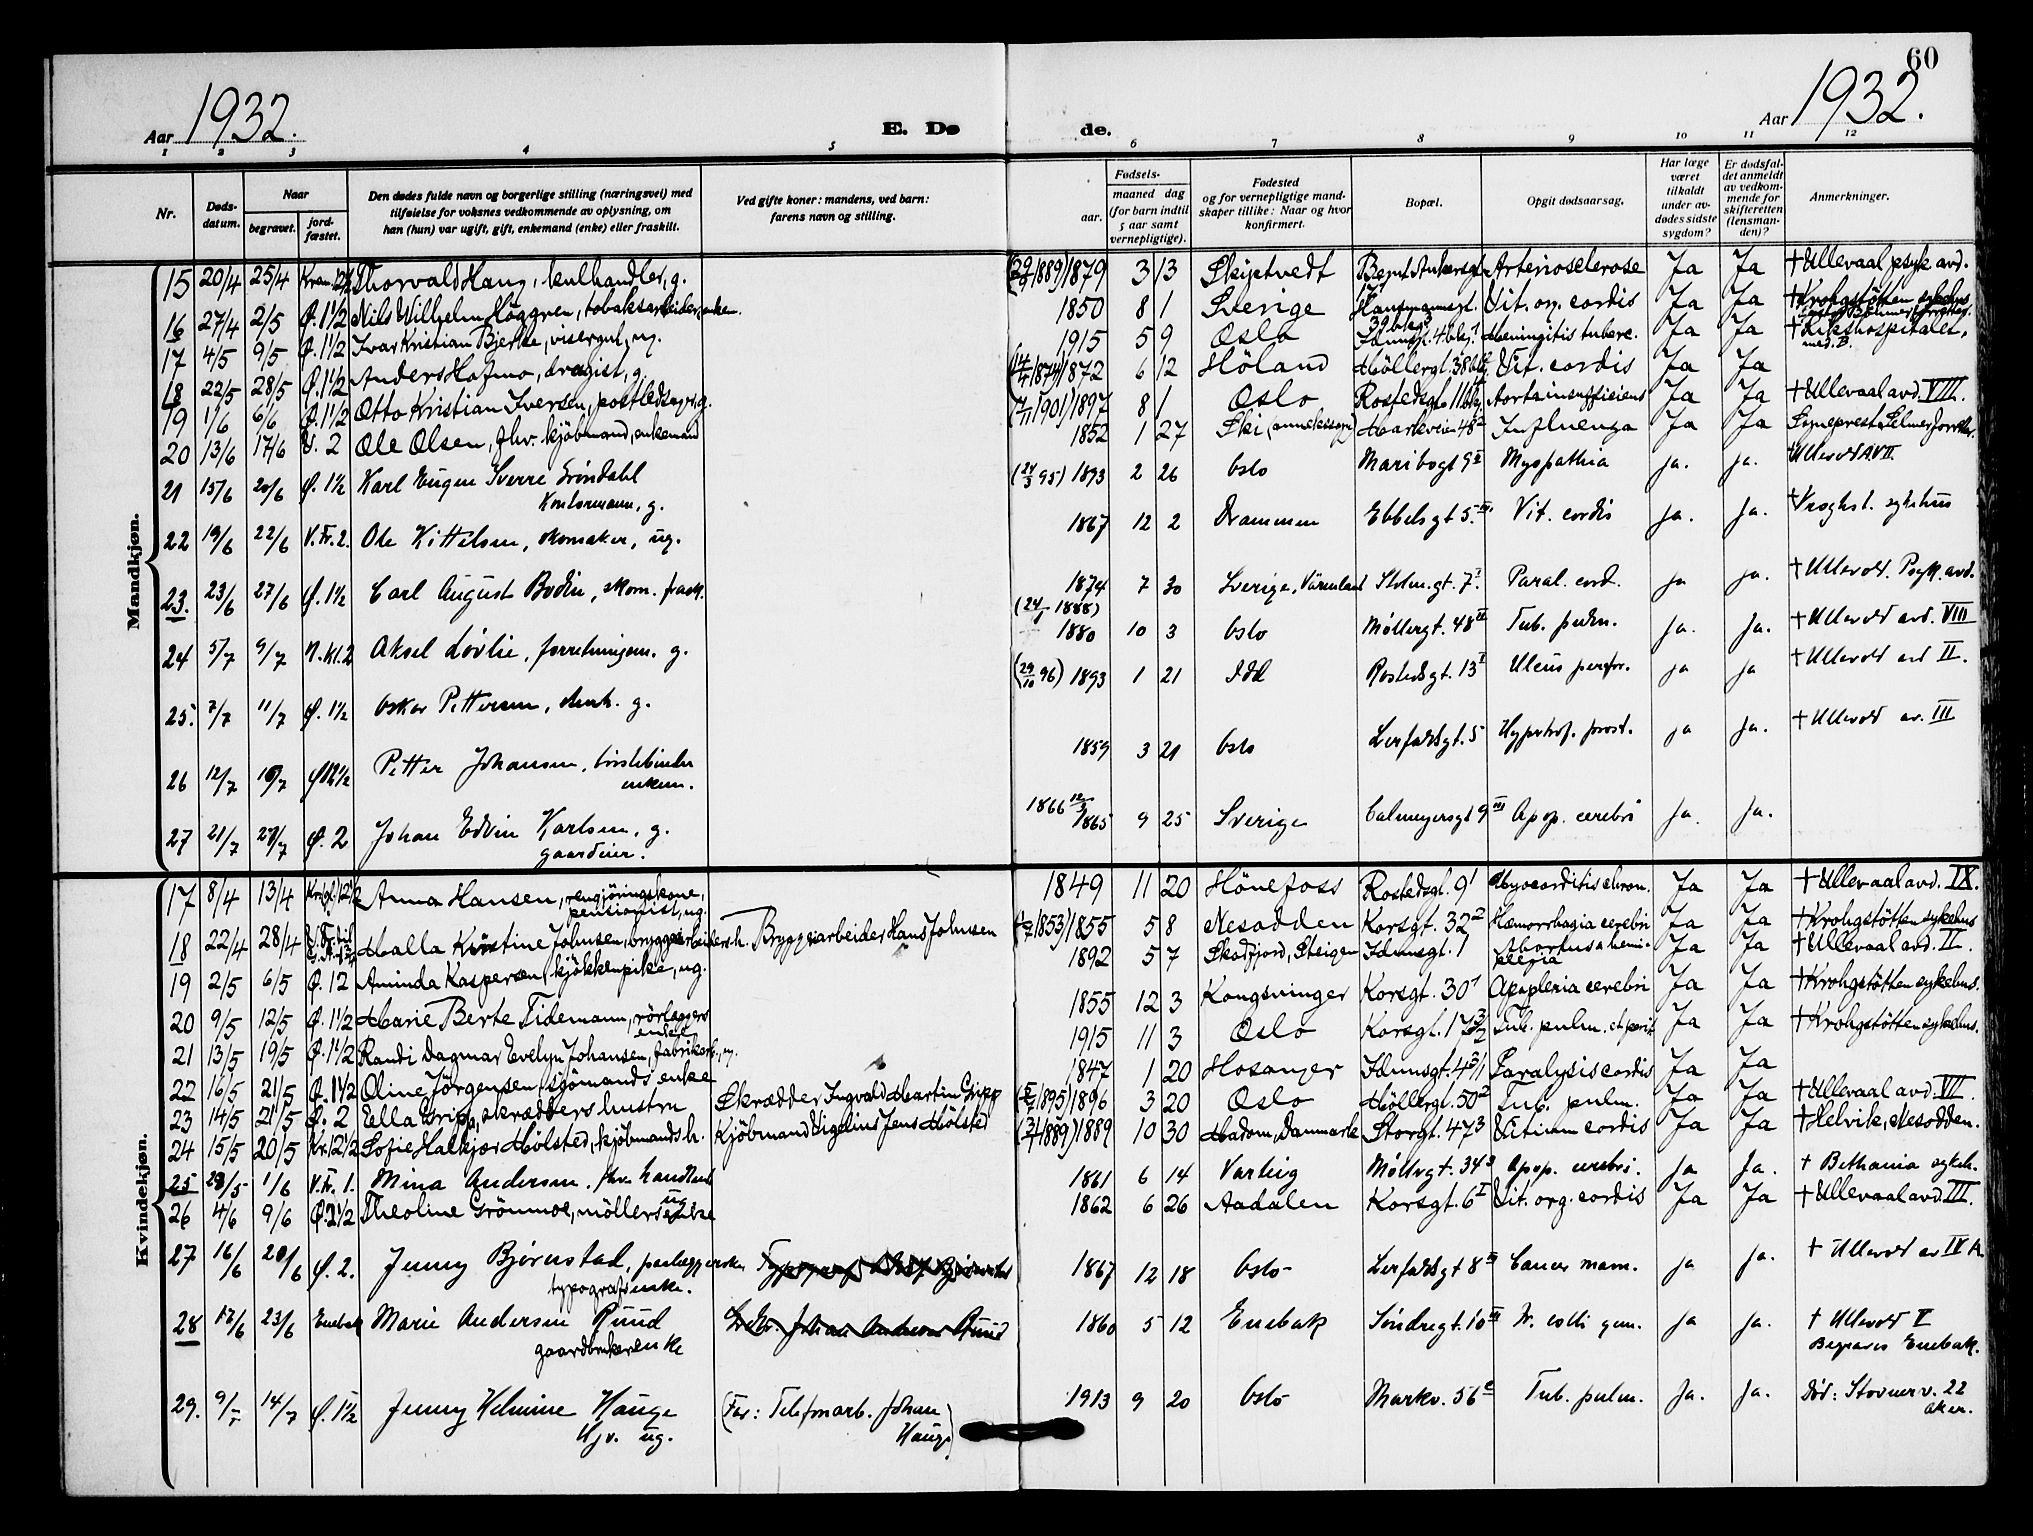 60
Aar 1932.
E. Dø de.
Aar 1932.
1 2 3 4 5 6 7 8 9 10 11 12
Nr.
Døds-datum.
Naar
begravet.
jord-fæstet.
Den dødes fulde navn og borgerlige stilling (næringsvei) med
tilføielse for voksnes vedkommende av oplysning, om
han (hun) var ugift, gift, enkemand (enke) eller fraskilt.
Ved gifte koner: mandens, ved barn:
farens navn og stilling.
Fødsels-
aar.
maaned dag
(for barn indtil
5 aar samt
vernepligtige).
Fødested
og for vernepligtige mand-
skaper tillike: Naar og hvor
konfirmert.
Bopæl.
Opgit dødsaarsag.
Har læge
været
tilkaldt
under av-
dødes sidste
sygdom?
Er dødsfal-
det anmeldt
av vedkom-
mende for
skifteretten
(lensman-
den)?
Anmerkninger.
Mandkjøn.
15 20/4 25/4 Thorvald Haug, kulhandler, g. 1879 3 13 Skiptvedt Arteriosclerose Ja Ja † Ullevaal psyk avd.
16 27/4 2/5 Ø. 1 1/2 Nils Wilhelm Höggren, tobaksarbeider, enkem. 1850 8 1 Sverige Hausmannsgt. Vit. org. cordis Ja Ja † Krohgstøtten sykehus
17 4/5 9/5 Ø. 1 1/2 Ivar Kristian Bjerke, visergut, ug. 1915 5 9 Oslo Meningitis tuberc. Ja Ja † Rikshospitalet, med. B.
18 22/5 28/5 Ø. 1 1/2 Anders Hofmo, dragist, g. 1872 6 12 Höland Möllergt. 38 Vit. cordis Ja Ja
19 1/6 6/6 Ø. 1 1/2 Otto Kristian Iversen, postbedsager, g. (7/11 1901) 1897 8 1 Oslo Rostedsgt. 11 Aortainsufficiens Ja Ja † Ullevaal avd. VIII.
20 13/6 17/6 V. 2 Ole Olsen, fhv. kjöbmand, enkemand 1852 1 27 Ski (annekssogn) Markveien 48 Influenza Ja Ja Sogneprest Selmer forrettet.
21 15/6 20/6 Ø. 1 1/2 Karl Eugen Sverre Gröndahl
Kontormann, g. 1893 2 26 Oslo Maribogt 9 II Myopathia ja. ja. Ullevål A VII.
22 19/6 22/6 V. Fr. 2. Ole Kittelsen, skomaker, ug. 1867 12 2 Drammen Ebbelsgt 5. III Vit. cordis ja. ja. † Kroghst. sykehus
23. 23/6 27/6 Ø. 1 1/2 Carl August Bodin, skom. frask. 1874 7 30 Sverige, Värmland Stolm. gt. 7 I Paral. cord. ja ja. † Ullevål. Psyk. avd.
24 5/7 9/7 N. kl. 2 Aksel Lövlie, forretningsm. g. 1880 10 3 Oslo Møllergt. 48 II Tub. pulm. ja. ja. † Ullevål avd. VIII
25. 7/7 11/7 Ø. 1 1/2 Oskar Pettersen, g. (29/10 96) 1893 1 21 Idd Rostedsgt. 13 I Ulcus perfor. ja ja † Ullevål avd II.
26 12/7 Petter Johansen, börstebinder
enkem. 1859 3 21 Oslo Lerfaldsgt. 5 Hypertrof. prost. ja ja. † Ullevål av. III
27 21/7 Ø. 2 Johan Edvin Karlsen, g.
gaardeier. 1865 9 25 Sverige Calmeyersgt 9 III Apop. cerebri ja. ja.
Kvindekjøn.
17 8/4 13/4 Anna Hansen, rengjöringskone,
pensionist, ug. 1849 11 20 Hönefoss Rostedsgt. 9 1 Myocarditis chron. Ja Ja † Ullevaal avd. IX.
18 22/4 28/4 Malla Kristine Johnsen, bryggearbeidersh. Bryggearbeider Hans Johnsen 1855 5 8 Nesodden Korsgt. 32 2 Hæmorrhagia cerebri Ja Ja † Krohgstøtten sykehus
19 2/5 6/5 Ø. 12 Aminda Kaspersen, kjökkenpike, ug. 1892 5 7 Skotfjord, Steigen Idunsgt. 1 Abortus & hemiplegia Ja Ja † Ullevaal avd. II.
20 9/5 12/5 Ø. 1 1/2 Marie Berte Tidemann, rörlæggers
enke 1855 12 3 Kongsvinger Korsgt. 30 1 Apoplexia cerebri Ja Ja † Krohgstøtten sykehus.
21 13/5 19/5 Ø. 1 1/2 Randi Dagmar Evelyn Johansen, fabrikarb., ug. 1915 11 3 Oslo Korsgt. 17 Tub. pulm. Ja Ja † Krohgstøtten sykehus.
22 16/5 21/5 Ø. 1 1/2 Oline Jörgensen, sjömands enke 1847 1 20 Hosanger Idunsgt. 4 Paralysis cordis Ja Ja
23 14/5 21/5 Ø. 2 Ella Gripp, skrædders hustru Skrædder Ingvald Martin Gripp 1896 3 20 Oslo Möllergt. 50 2 Tub. pulm. Ja Ja † Ullevaal avd. VII.
24 15/5 20/5 Kr. 12 1/2 Sofie Halkjær Mölsted, kjöbmands h. Kjöbmand Vigelius Jens Mölsted 1889 10 30 Madom, Danmark Storgt. 47 3 Vitium cordis Ja Ja † Helvik, Nesodden.
25 1/6 V. Fr. 1. Mina Andersen, fhv. handlend
ug 1861 6 14 Varteig Møllergt. 34 3 Apop. cerebri. ja Ja. † Bethania sykeh.
26 4/6 9/6 Ø. Theoline Grönmoe, möllers enke 1862 6 26 Aadalen Korsgt. 6 I Vit. org. cordis Ja Ja † Ullevaal avd. III.
27 16/6 20/6 Ø. 2. Jenny Bjørnstad,
typografenke. 1867 12 18 Oslo Lerfaldsgt 8 III Cancer mam. ja ja. † Ullevål av IX A.
28 17/6 23/6 Enebak Marie Andersen Ruud
gaardbrukerenke Johan Andersen Ruud 1860 5 12 Enebak Söndregt. 10 III Fr. colli ja ja. † Ullevål V
Begraves Enebak.
29. 9/7 14/7 Ø. 1 1/2 Jenny Helmine Hauge
Hjv. ug. (Far: Telefonarb. Johan
Hauge) 1913 9 20 Oslo Markv. 56 Tub. pulm. Ja. Ja. Död: Stovnerv. 22
Aker.